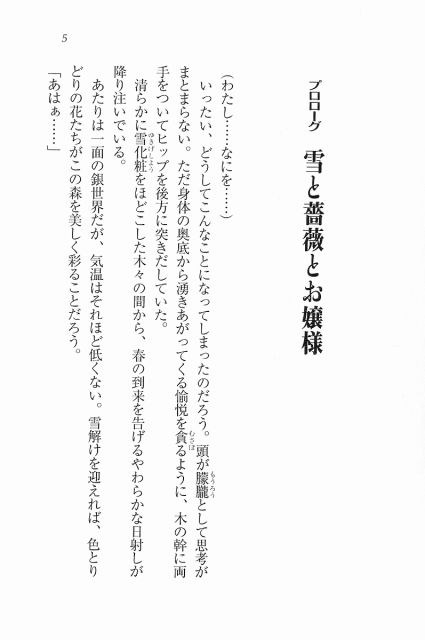 5
プロローグ 雪と薔薇とお嬢様
（わたし……なにを……）
いったい、どうしてこんなことになってしまったのだろう。頭が朦朧として思考が
まとまらない。ただ身体の奥底から湧きあがってくる愉悦を貪るように、木の幹に両
手をついてヒップを後方に突きだしていた。
清らかに雪化粧をほどこした木々の間から、春の到来を告げるやわらかな日射しが
降り注いでいる。
あたりは一面の銀世界だが、気温はそれほど低くない。雪解けを迎えれば、色とり
どりの花たちがこの森を美しく彩ることだろう。
「あはぁ……」